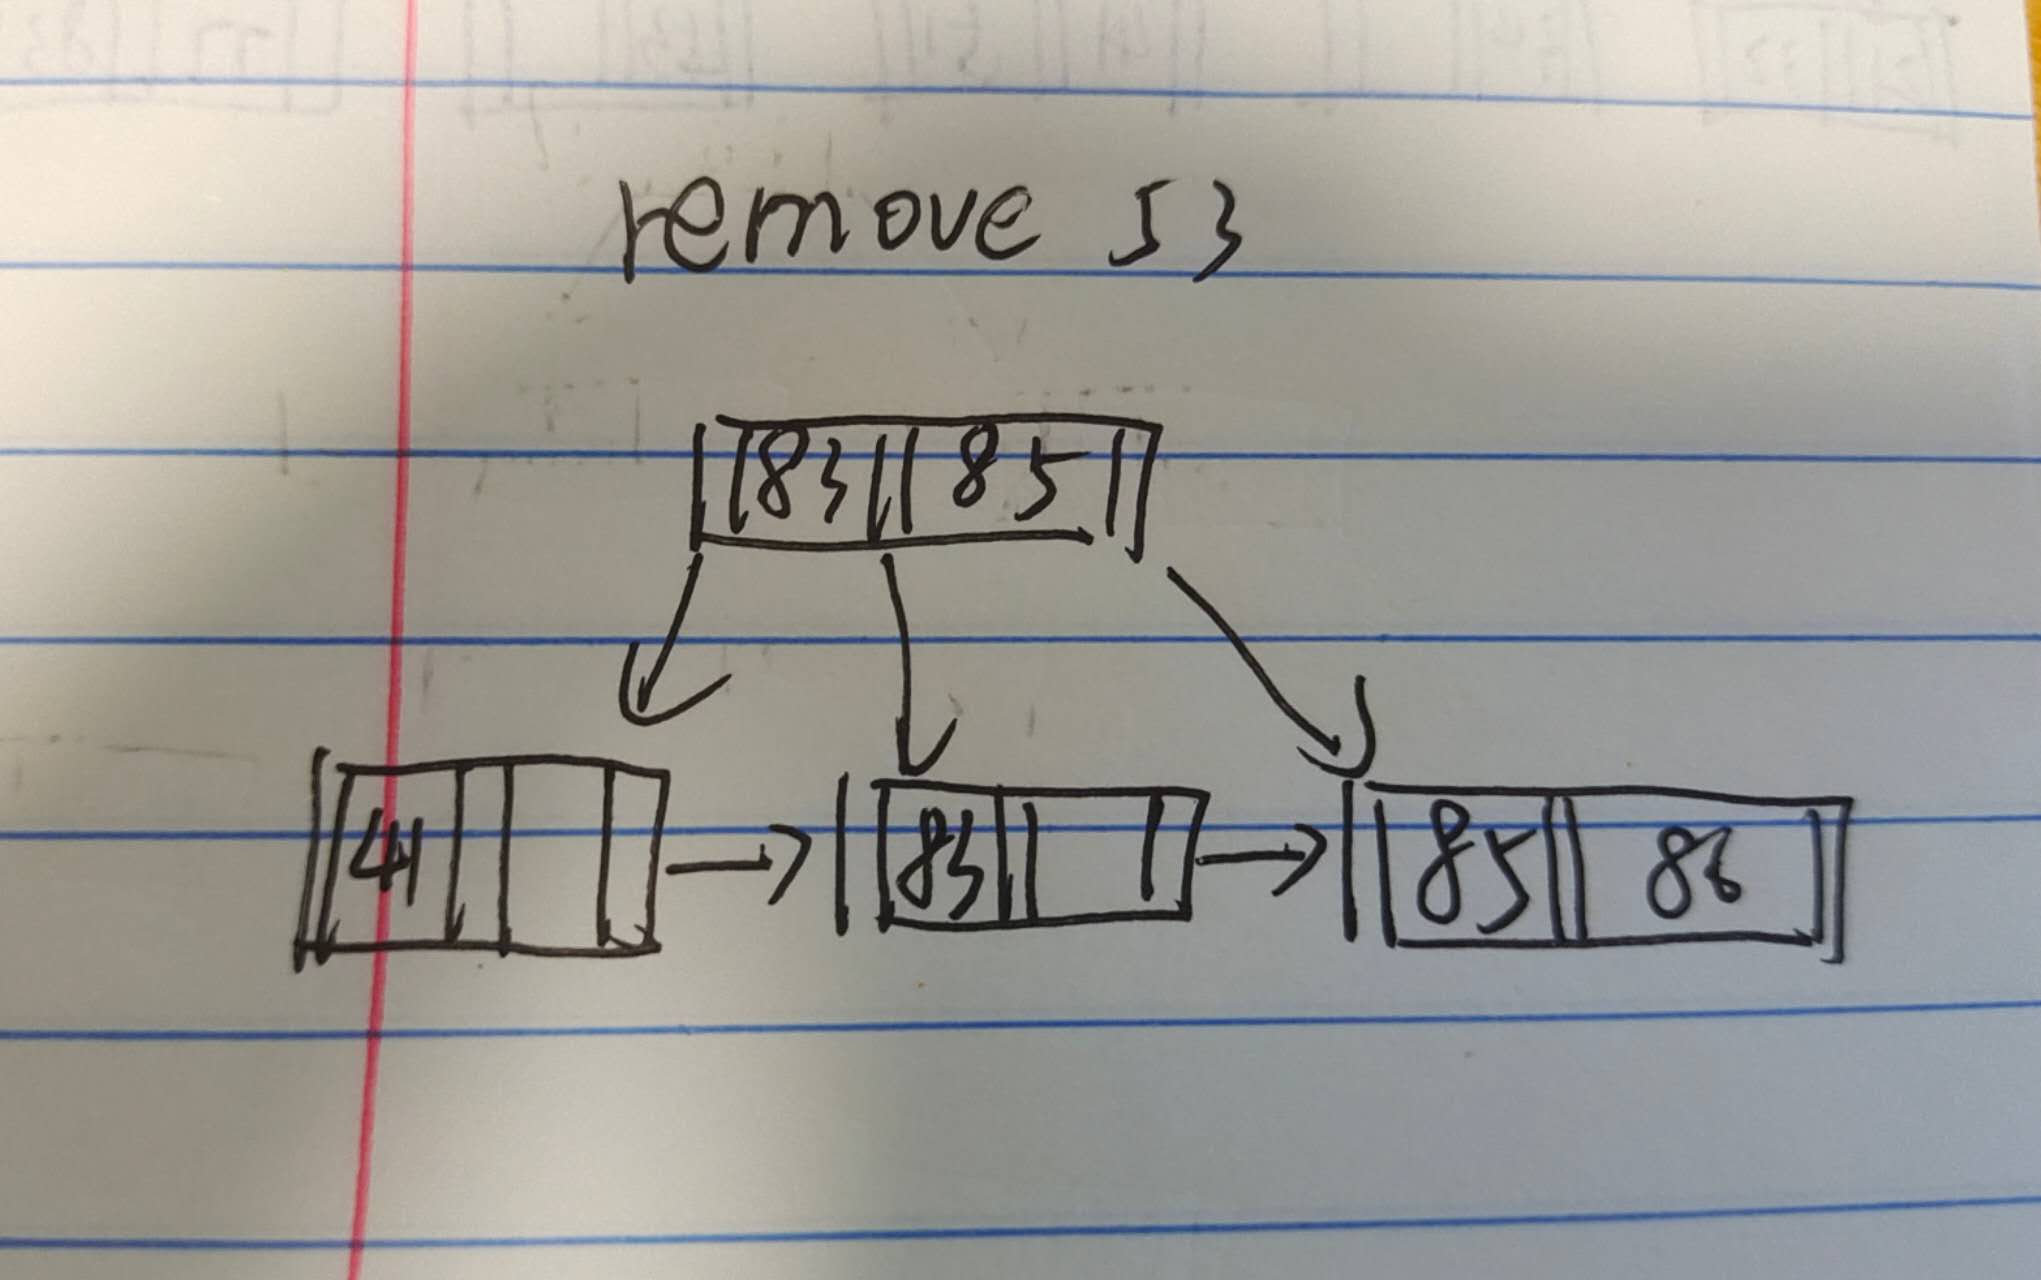 remove 53
83 85
41 83 85 86